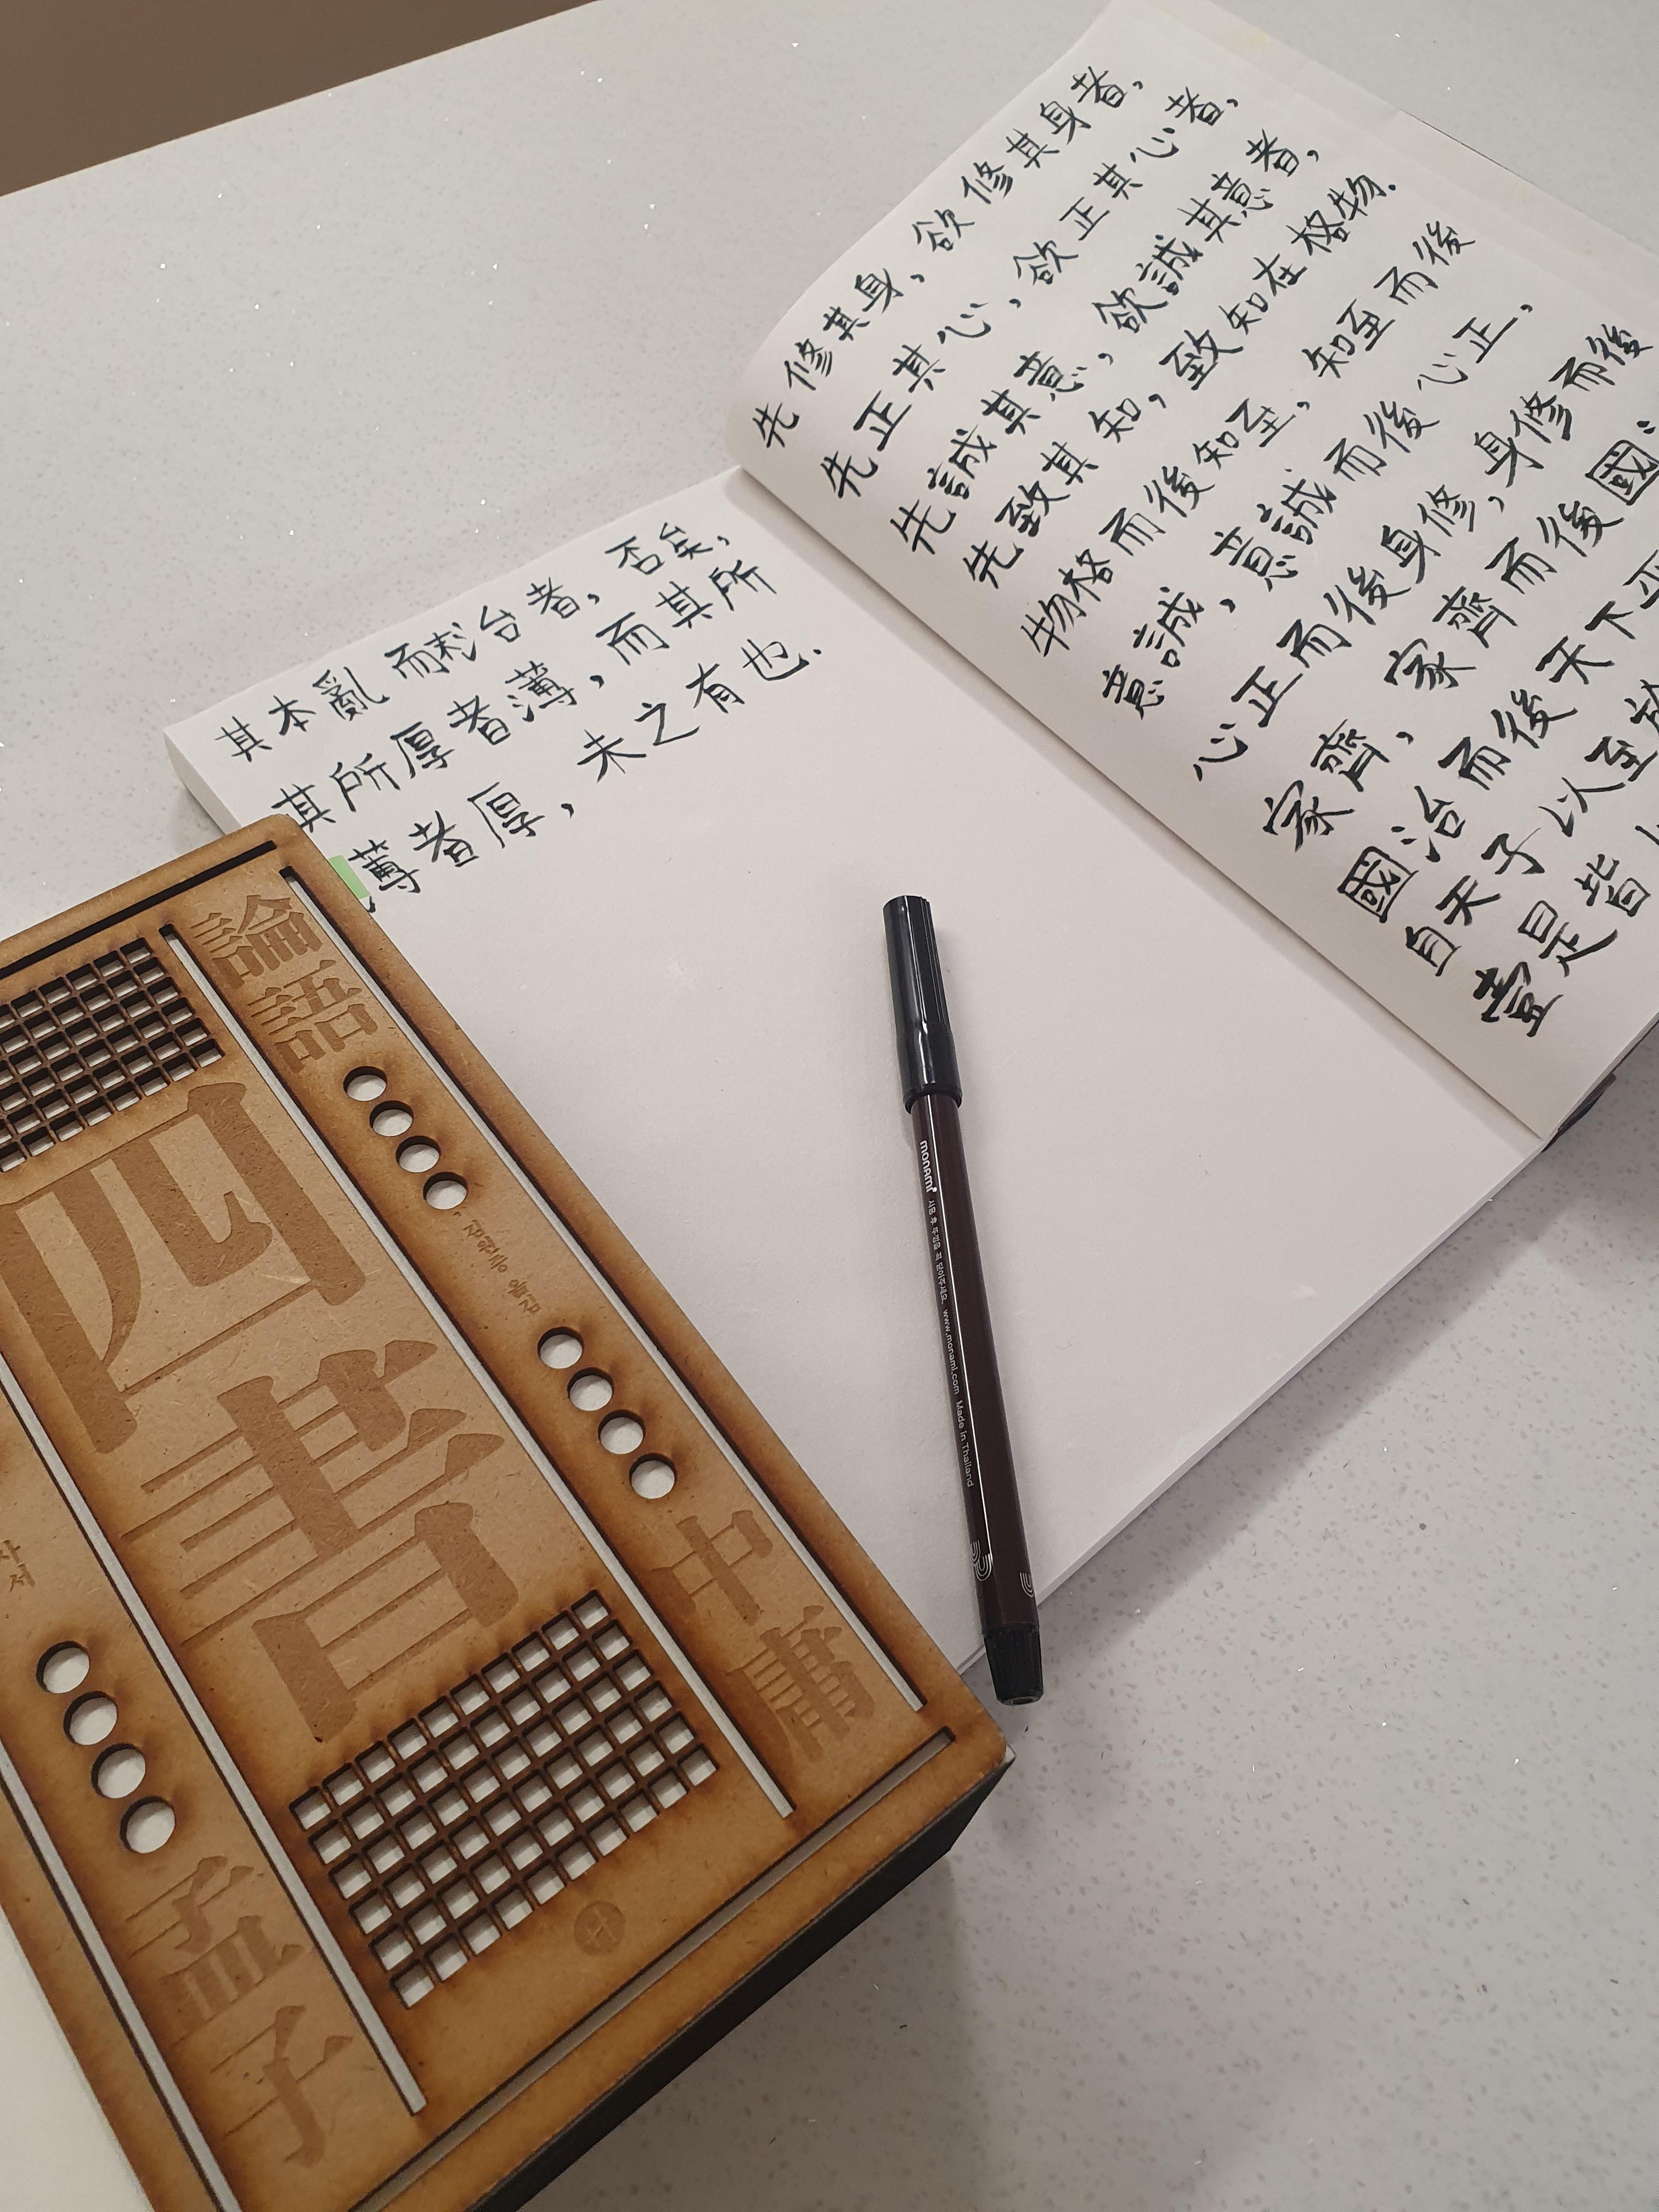 先修其身，欲修其身者，
先正其心，欲正其心者，
先誠其意，欲誠其意者，
先致其知，致知在格物.
物格而後知至，知至而後
意誠，意誠而後心正，
心正而後身修，身修而後
家齊，家齊而後國
國治而後天下平
自天子以至於
壹是皆以
其本亂而末治者，否矣，
其所厚者薄，而其所
薄者厚，未之有也.
論語
中庸
四書
사서
孟子
monami
www.monami.com Made in Thailand